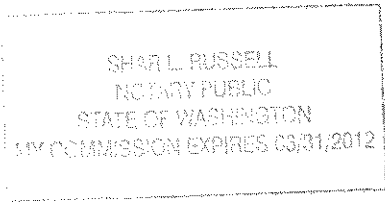 SHAR L. RUSSELL
NOTARY PUBLIC
STATE OF WASHINGTON
MY COMMISSION EXPIRES 03/31/2012